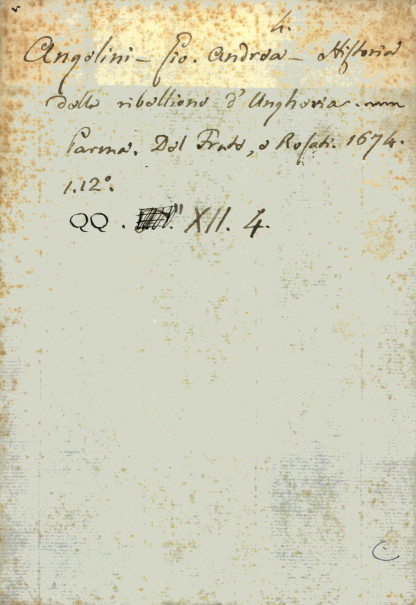 4.
Angelini - Gio. Andrea - Historia
della ribellione d'Ungheria.
Parma. Del Frate, e Rosati. 1674.
1.12°.
QQ. XII. 4.
C